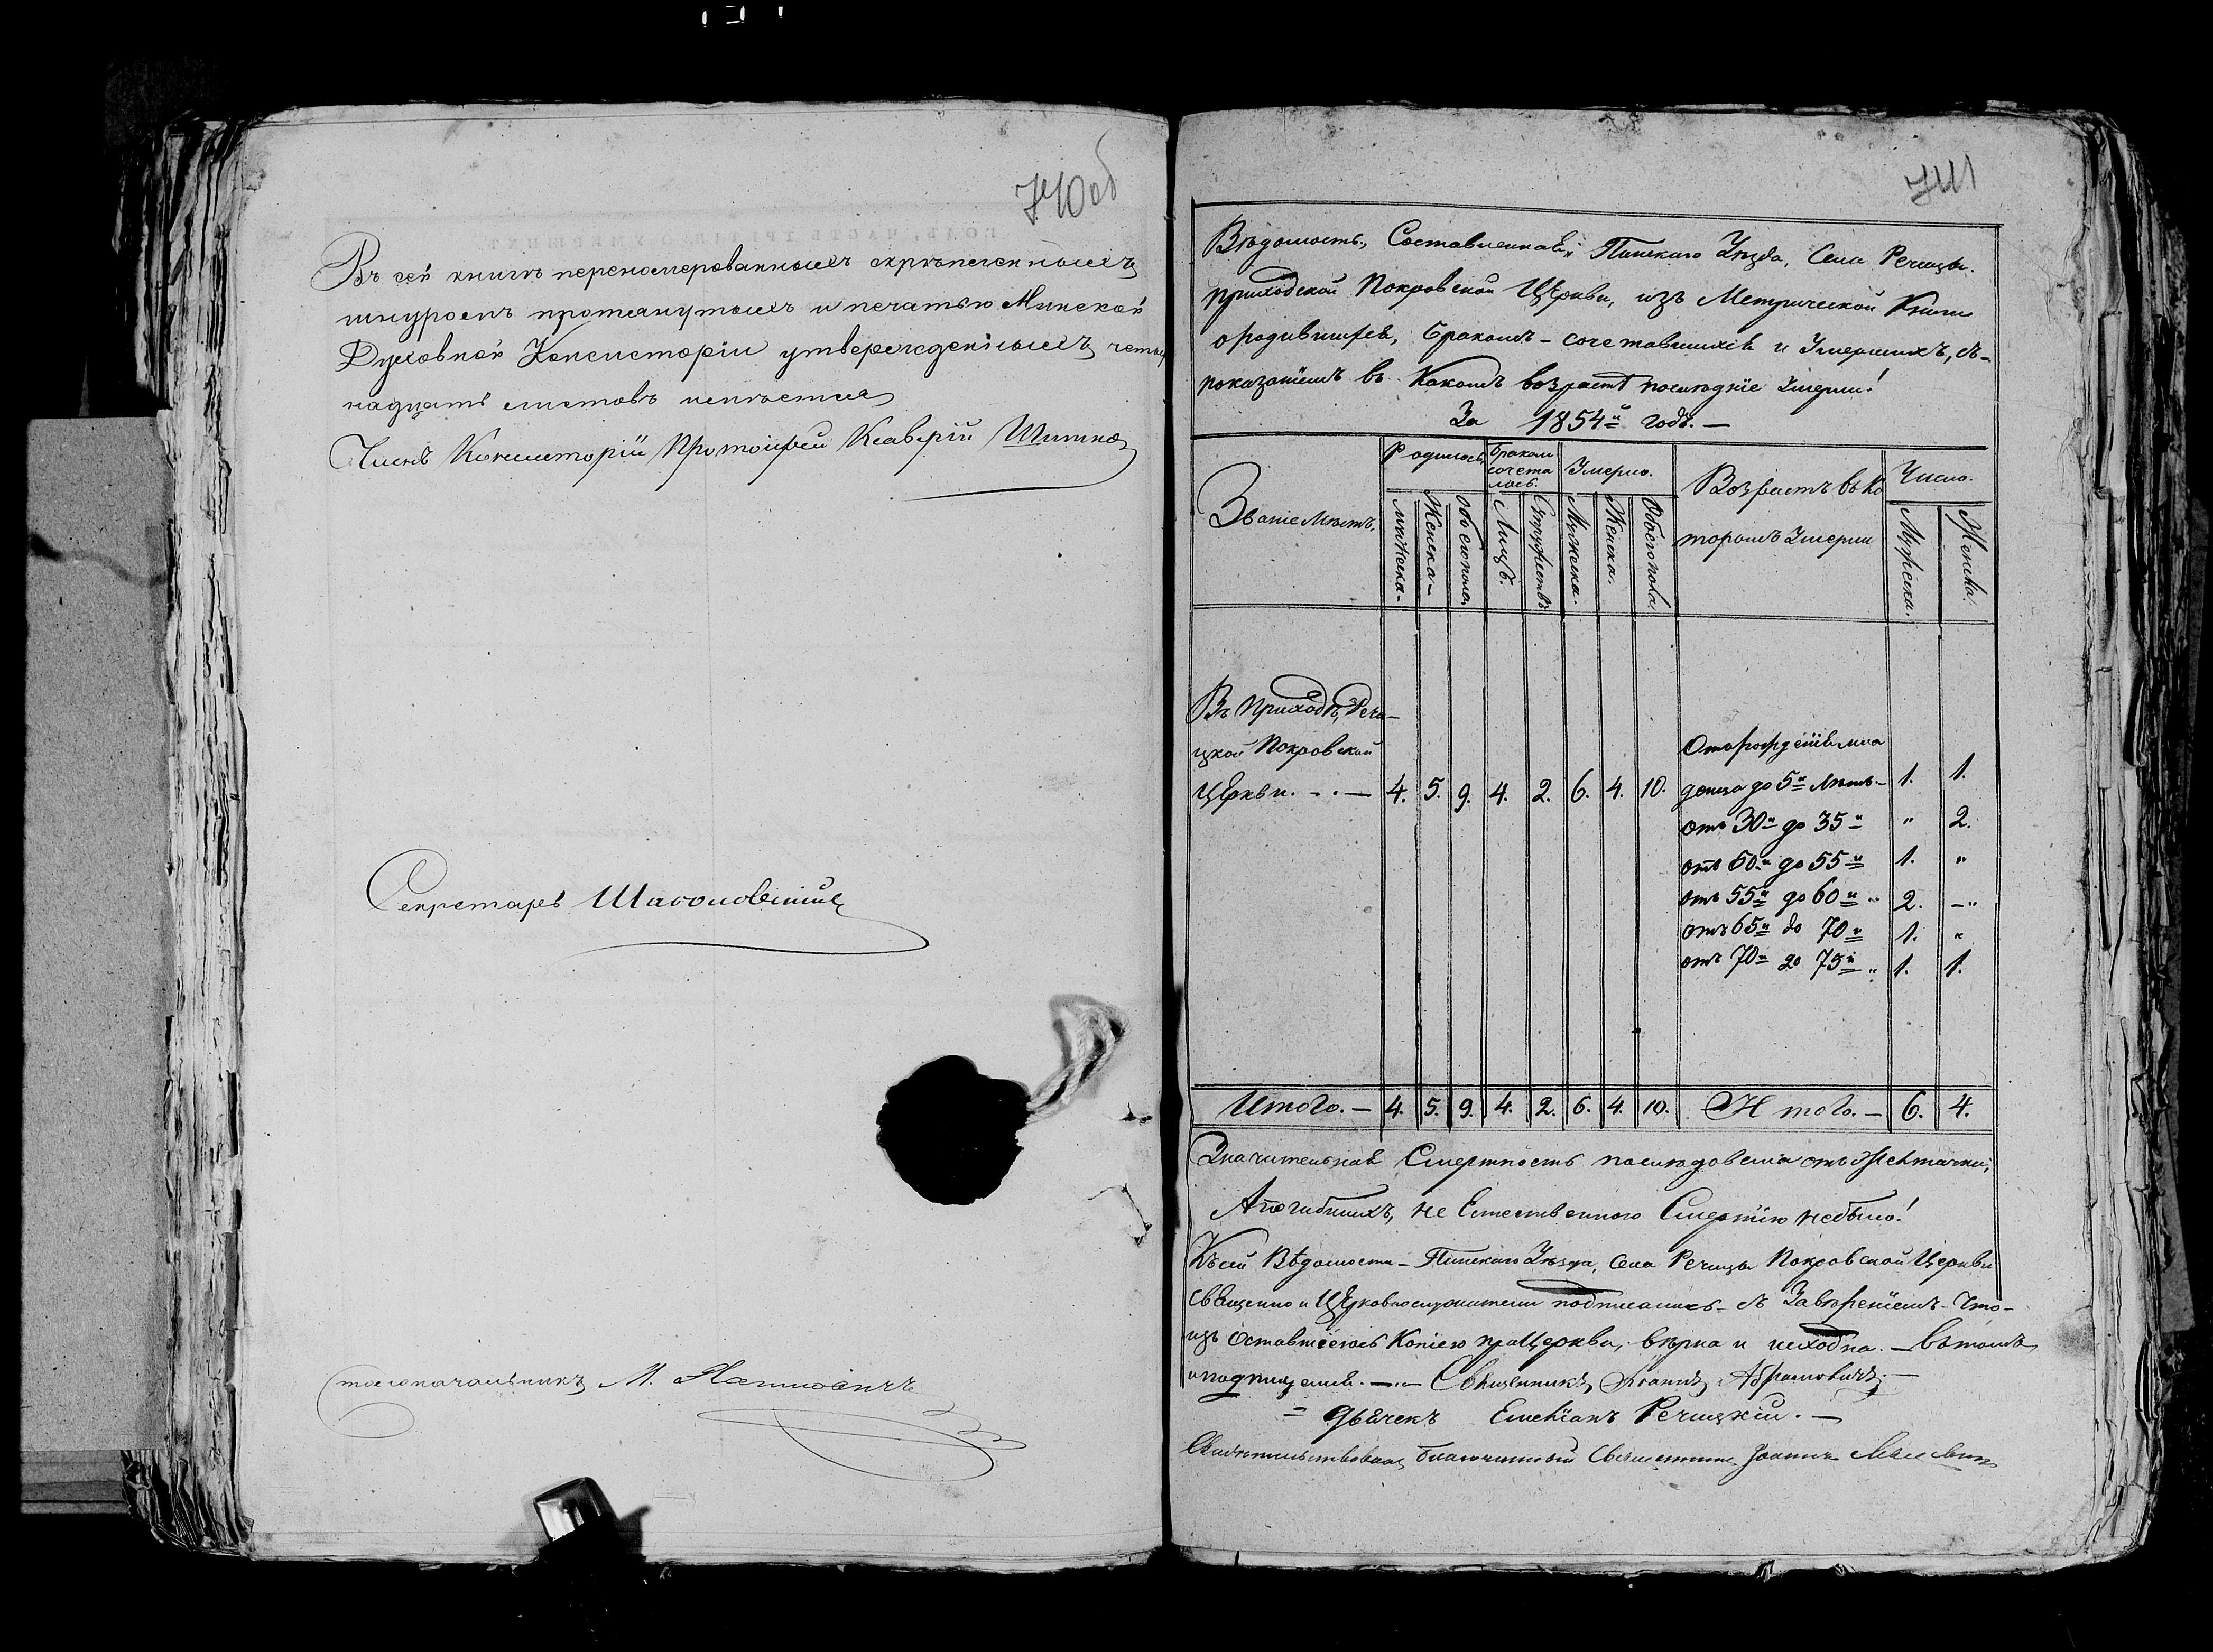 740об
Въ сей книгѣ перенумерованныхъ скрѣпленныхъ
шнуромъ протянутыхъ и печатью Минской
Духовной Консисторіи утвержденныхъ четыр
надцать листовъ имѣется
Членъ Консисторіи Протоіерей Ксаверій
Секретарь
Столоначальникъ М.
741
Вѣдомость, Составленная, Пинскаго Уѣзда, Села Речицы.
приходской Покровской Церкви, изъ Метрической Книги
о родившихся, бракомъ-сочетавшихся и Умершихъ, съ-
показаніемъ въ Какомъ возрастѣ послѣдніе Умерли!
За 1854й годъ. —
Званіе Мѣстъ.
Родилось
Бракомъ
сочета
лось.
Умерло.
Возрастъ въ ко
торомъ Умерли
Число.
Мужеска-
Женска-
Обоего пола
Лицъ.
Супружествъ
Мужеска.
Женска.
Обоего пола
Мужеска.
Женска.
Въ Приходѣ, Речи-
цкой Покровской
Церкви. - . — 4. 5. 9. 4. 2. 6. 4. 10.
Отъ рожденія мла
денца до 5и лѣтъ- 1. 1.
отъ 30и до 35и " 2.
отъ 50и до 55и 1. "
отъ 55и до 60и " 2. —"
отъ 65и до 70и 1. "
отъ 70и до 75и " 1. 1.
Итого. — 4. 5. 9. 4. 2. 6. 4. 10. Итого. — 6. 4.
Значительная Смертность послѣдовала отъ
А погибшихъ, не Естественною Смертію небыло!
Къ сей Вѣдомости - Пинскаго Уѣзда, Села Речицы Покровской Церкви
Священно и Церковнослужители подписались - съ Завѣреніемъ - Что-
изъ Оставшеюсь Копіею при Церкви, вѣрна и исходна. — въ томъ
и подпищемся. —.— Священникъ Іоаннъ Абрамовичъ. —
= дьячекъ Емеліанъ Речицкій. —
Свидѣтельствовалъ благочинный Священникъ Іоаннъ